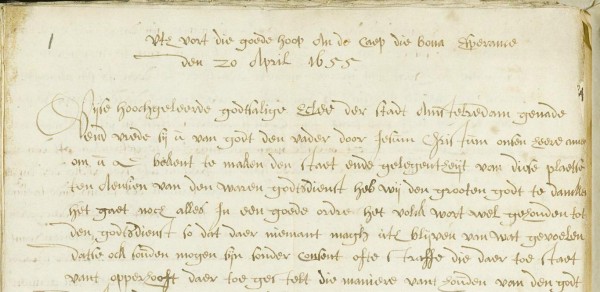 1
Vte vort die goede hoop An de Caep die bona Esperance
den 20 April 1655
hoochgeleerde godtsalige der stadt Amsterredam genade
ende vrede sij u van godt den vader door Jesum Christum onsen heere amen
om u bekent te maken den staet ende gelegentheijt van diese plaetse
ten van den waren godtsdienst heb wij den grooten godt te dancken
het gaet noch alles In een goede ordre het volck wort wel gehouden tot
den godtsdienst so dat daer niemant magh blijven van wat gevoelen
datse ock souden mogen sijn sonder consent ofte straffe die daer toe staet
vant opperhooft daer toe gestelt die maniere vant houden van den godt